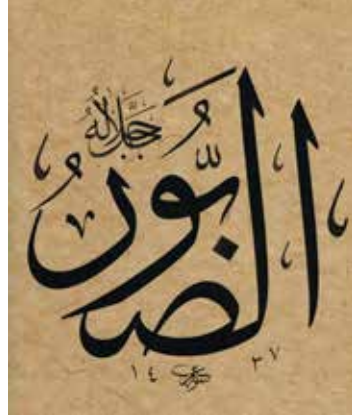 جل جلاله
الصبور
١٤٣٧